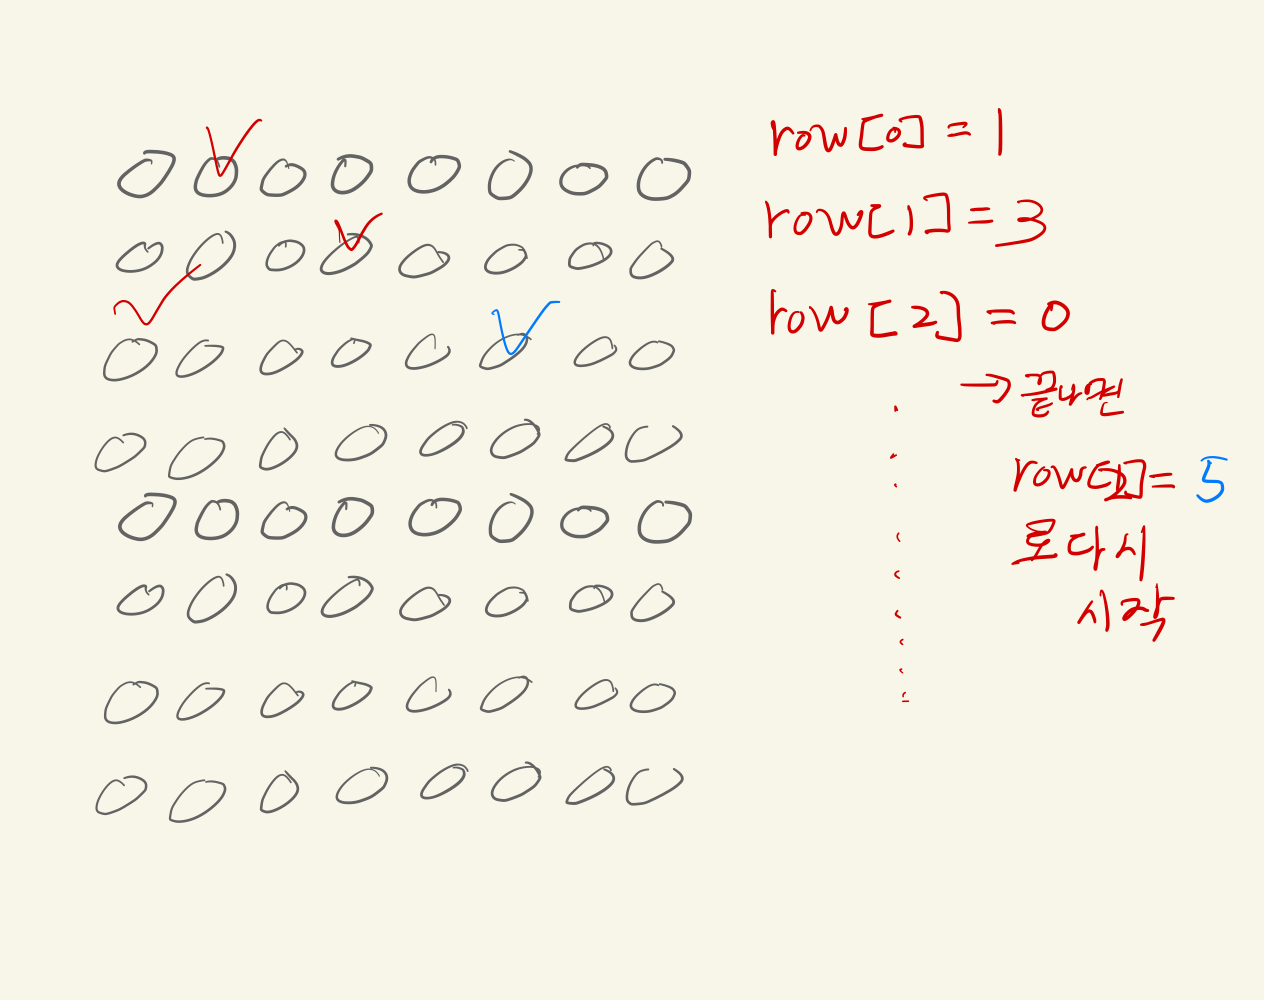 row[0] = 1
row[1] = 3
row[2] = 0
→ 끝나면
row[2] = 5
로 다시
시작